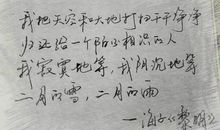 我把天空和大地打扫干干净净
归还给一个陌不相识的人
我寂寞地等，我阴沉地等
二月的雪，二月的雨
—海子《黎明》